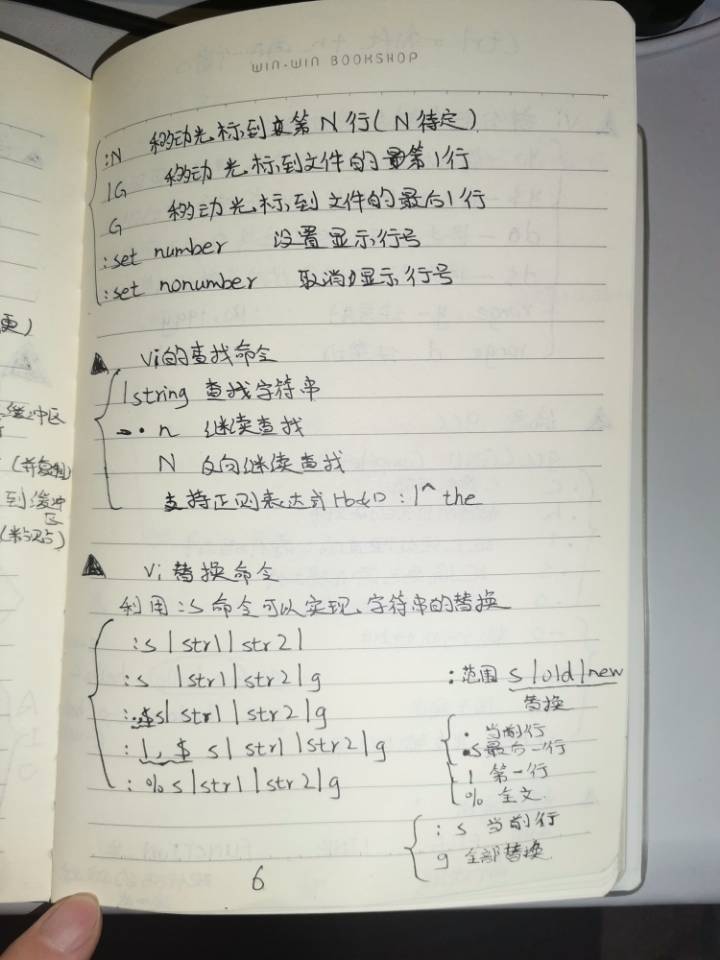 WIN-WIN BOOKSHOP
:N 移动光标到第N行(N待定)
1G 移动光标到文件的第1行
G 移动光标到文件的最后1行
:set number 设置显示行号
:set nonumber 取消显示行号
vi的查找命令
/string 查找字符串
n 继续查找
N 反向继续查找
支持正则表达式 :/^the
vi替换命令
利用:s命令可以实现字符串的替换
:s/str1/str2/
:s /str1/str2/g
:.$s/str1/str2/g
:1,$ s/str1/str2/g
:%s/str1/str2/g
:范围 s/old/new
替换
. 当前行
$最后一行
1 第一行
% 全文
:s 当前行
g 全部替换
6
缓冲区
到缓冲
区